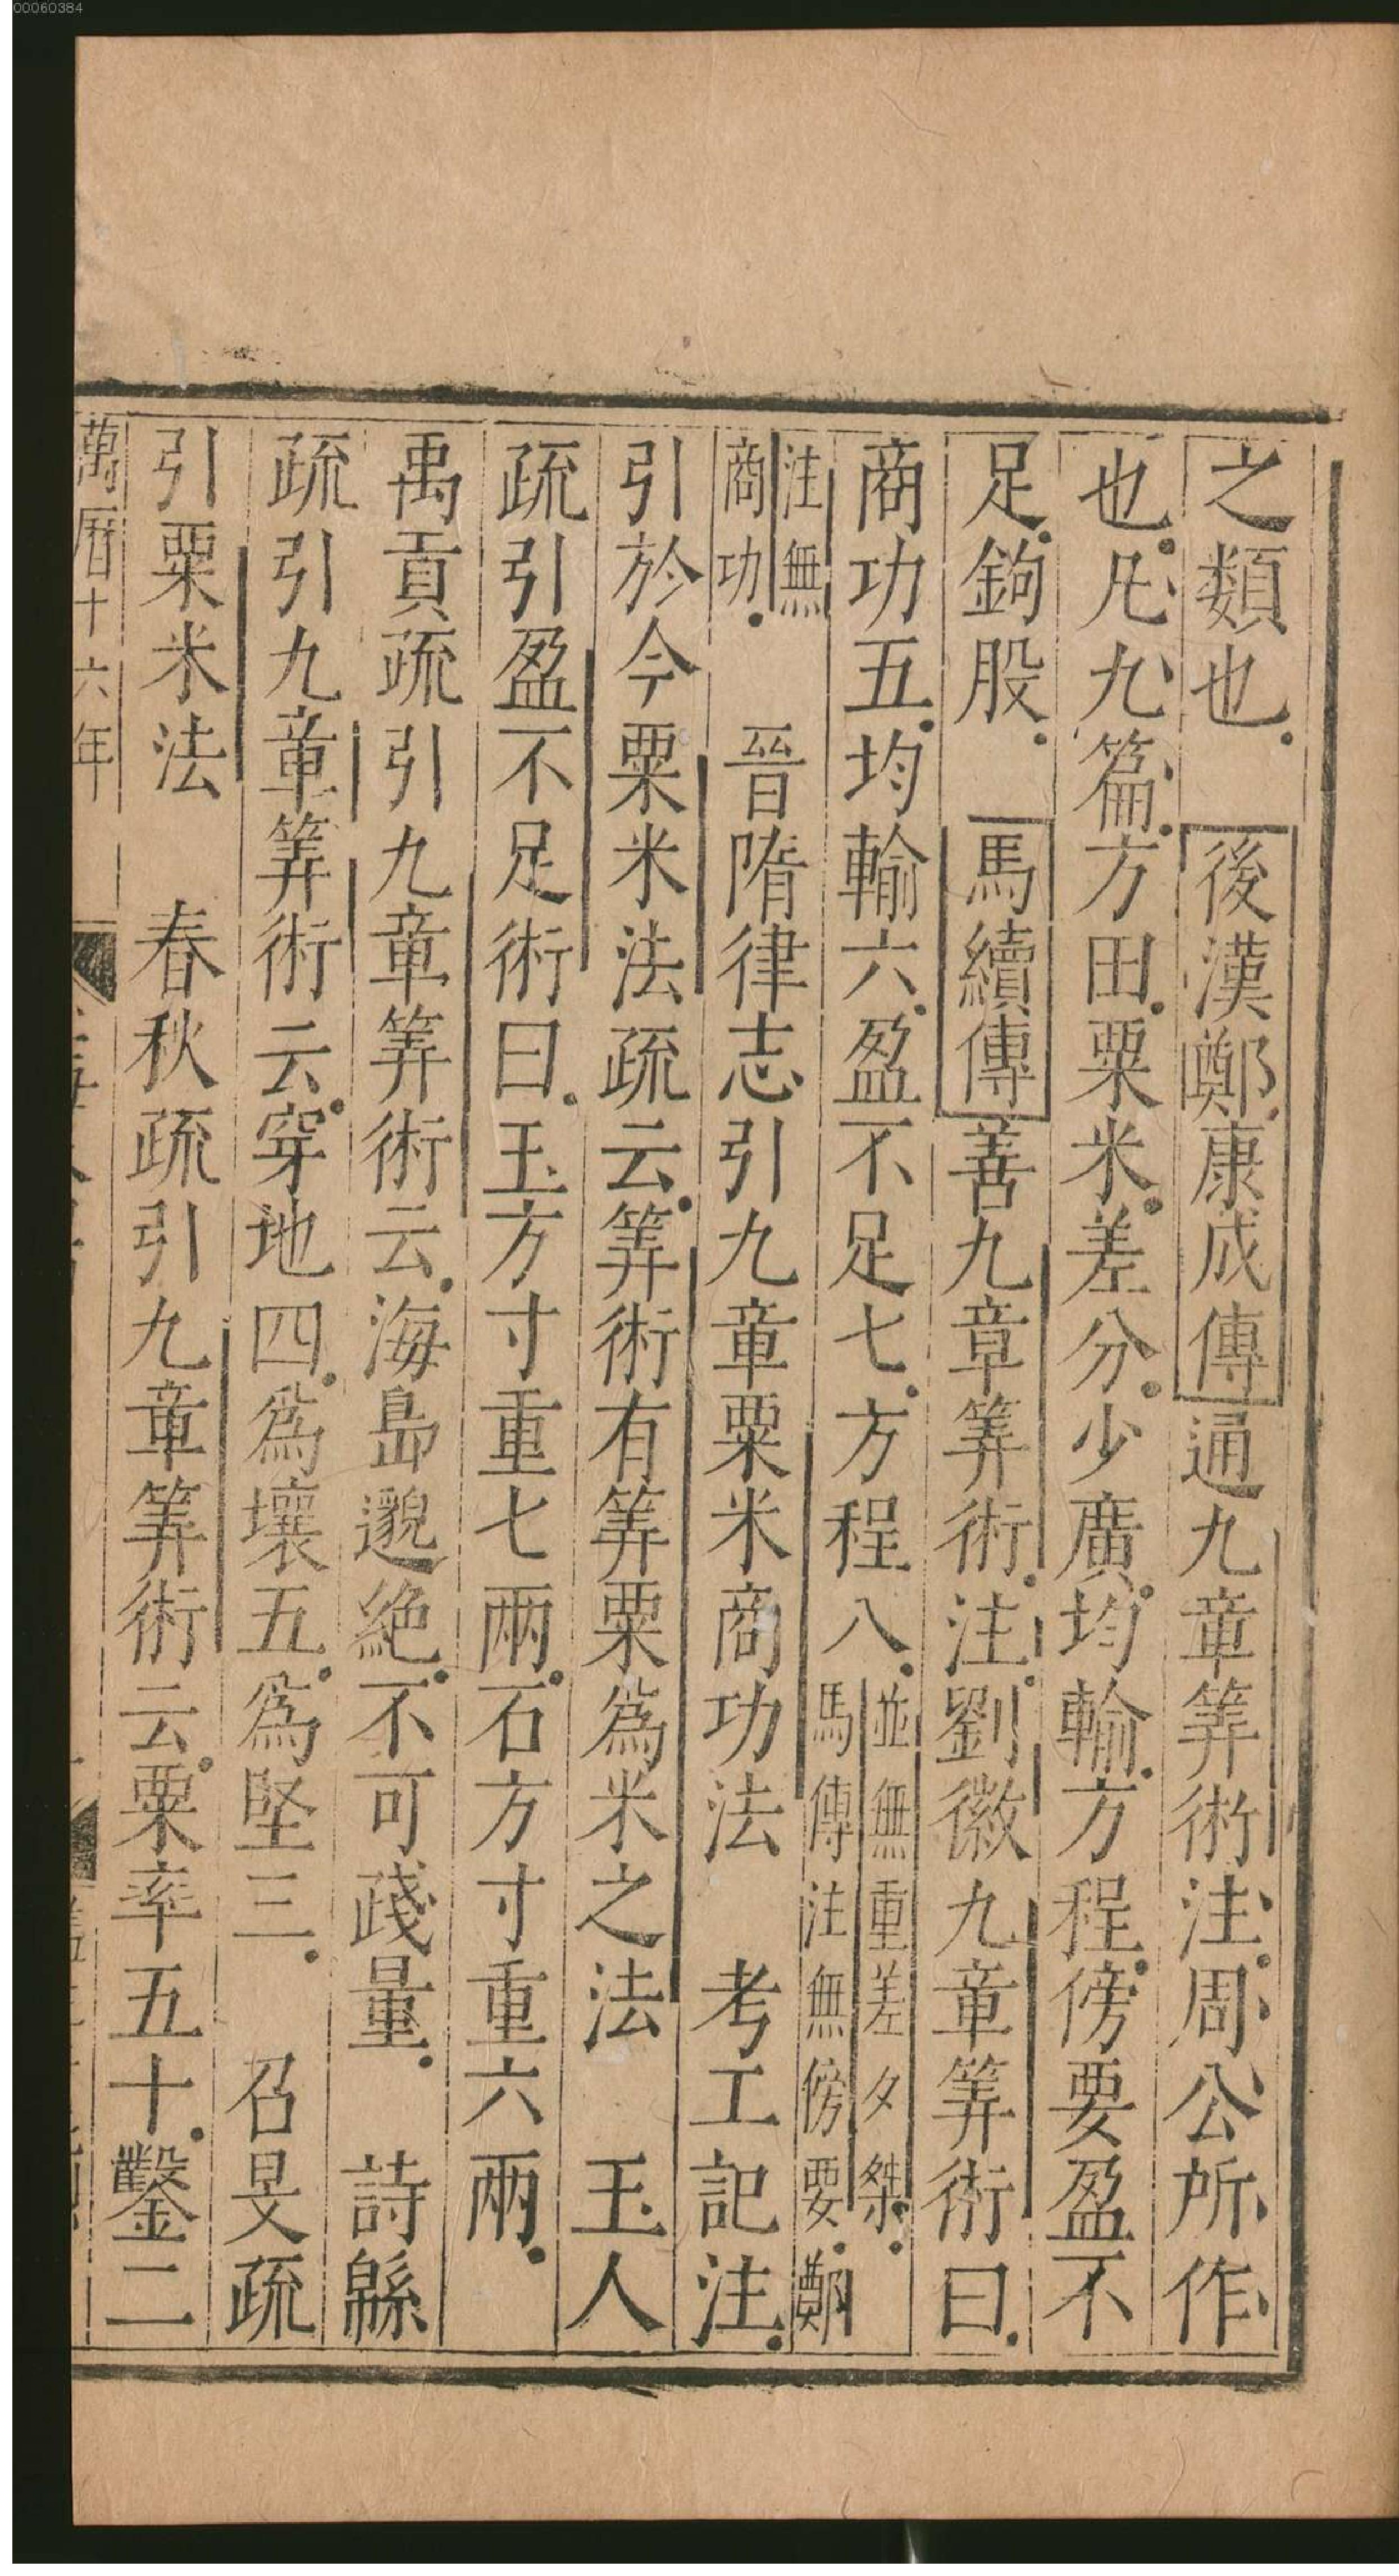 00060384
之類也後漢鄭康成傳通九章筭術注周公所作
也凡九篇方田粟米差分少廣均輸方程傍要盈不
足鉤股馬續傳善九章筭術注劉徽九章筭術曰
商功五均輸六盈不足七方程八並無重差夕桀
馬傳注無傍要鄭
注無
商功晉隋律志引九章粟米商功法考工記注
引於今粟米法疏云筭術有筭粟為米之法玉人
疏引盈不足術曰玉方寸重七兩石方寸重六兩
禹貢疏引九章筭術云海島邈絶不可踐量詩緜
疏引九章筭術云穿地四為壤五為堅三召旻疏
引粟米法春秋疏引九章筭術云粟率五十鑿二
萬曆十六年